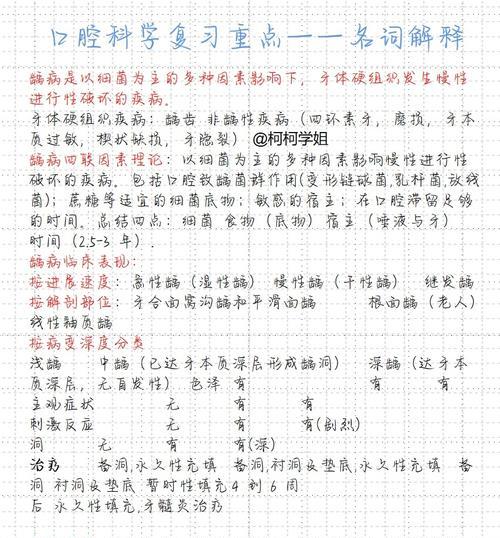 口腔科学复习重点——名词解释
龋病是以细菌为主的多种因素影响下，牙体硬组织发生慢性
进行性破坏的疾病.
牙体硬组织疾病：龋齿 非龋性疾病（四环素牙，磨损，牙本
质过敏，楔状缺损，牙隐裂） @柯柯学姐
龋病四联因素理论：以细菌为主的多种因素影响慢性进行性
破坏的疾病。包括口腔致龋菌群作用(变形链球菌,乳杆菌,放线
菌)；蔗糖等适宜的细菌底物；敏感的宿主；在口腔滞留足够
的时间。总结四点：细菌 食物（底物）宿主（唾液与牙）
时间（2.5-3 年）.
龋病临床表现：
按进展速度：急性龋（湿性龋） 慢性龋（干性龋） 继发龋
按解剖部位：牙合面窝沟龋和平滑面龋 根面龋（老人）
线性釉质龋
按病变深度分类
浅龋 中龋（已达牙本质深层形成龋洞） 深龋（达牙本
质深层，无自发性） 色泽 有 有 有
主观症状 无 有 有
刺激反应 无 有 有(剧烈)
洞 无 有 有(深)
治疗 备洞,永久性充填 备洞,衬洞及垫底,永久性充填 备
洞 衬洞及垫底 暂时性填充4 到 6 周
后 永久性填充,牙髓炎治疗